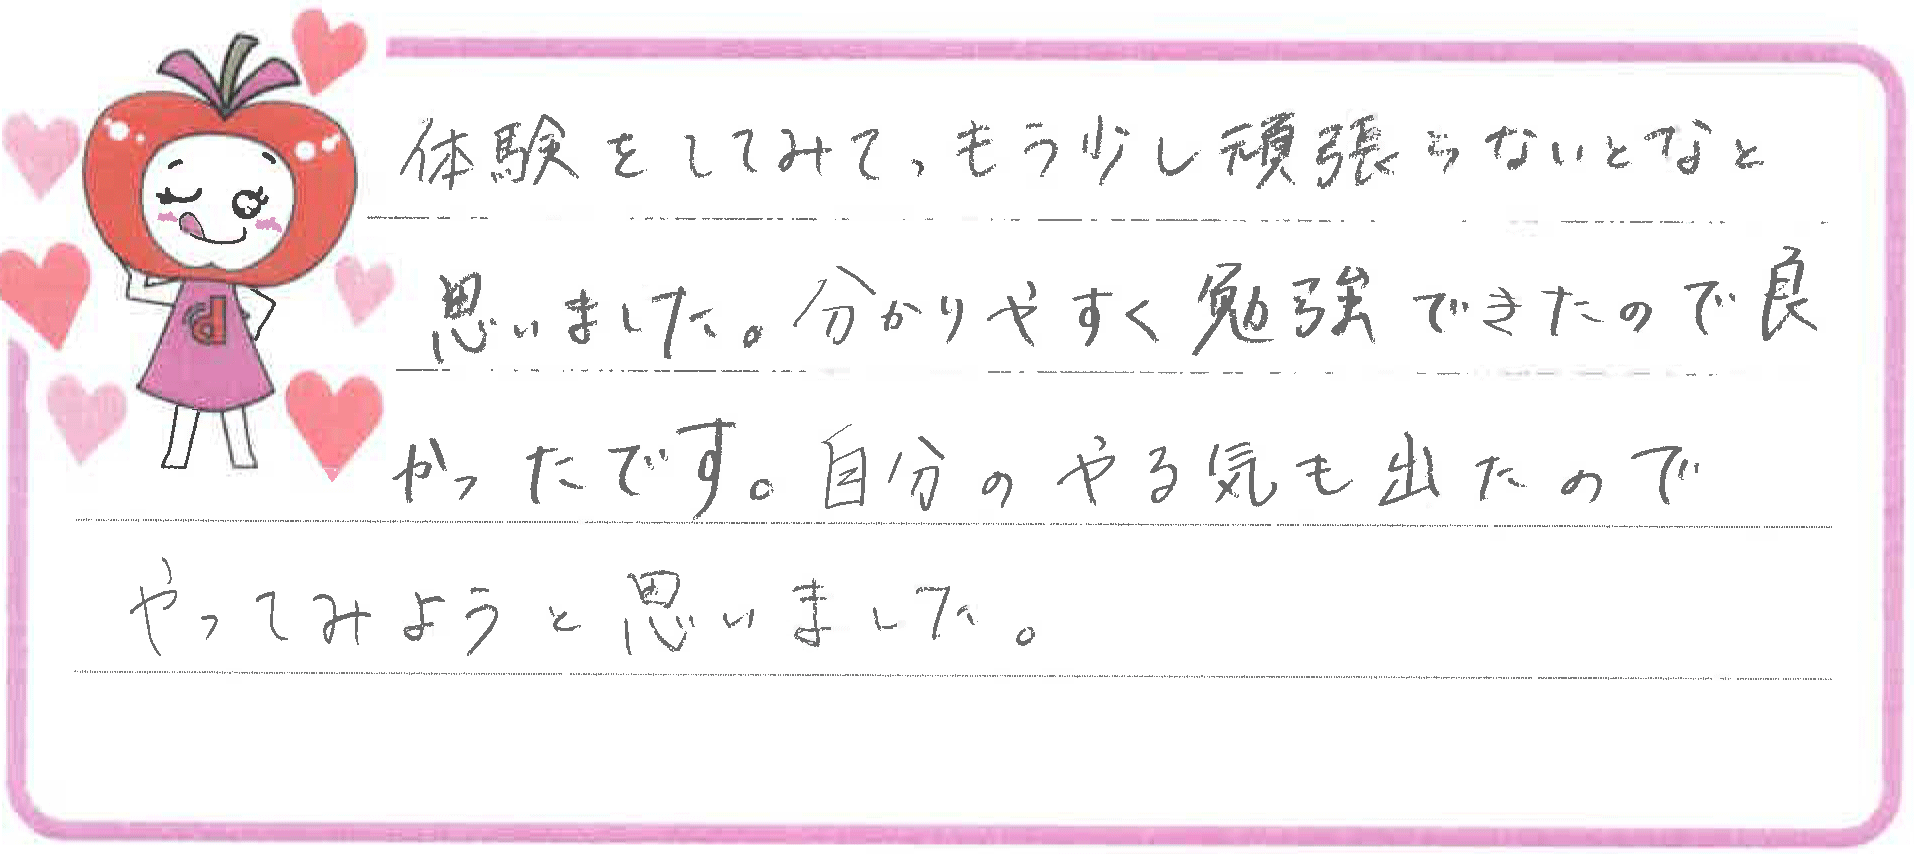 体験をしてみて、もう少し頑張らないとなと
思いました。分かりやすく勉強できたので良
かったです。自分のやる気も出たので
やってみようと思いました。
d